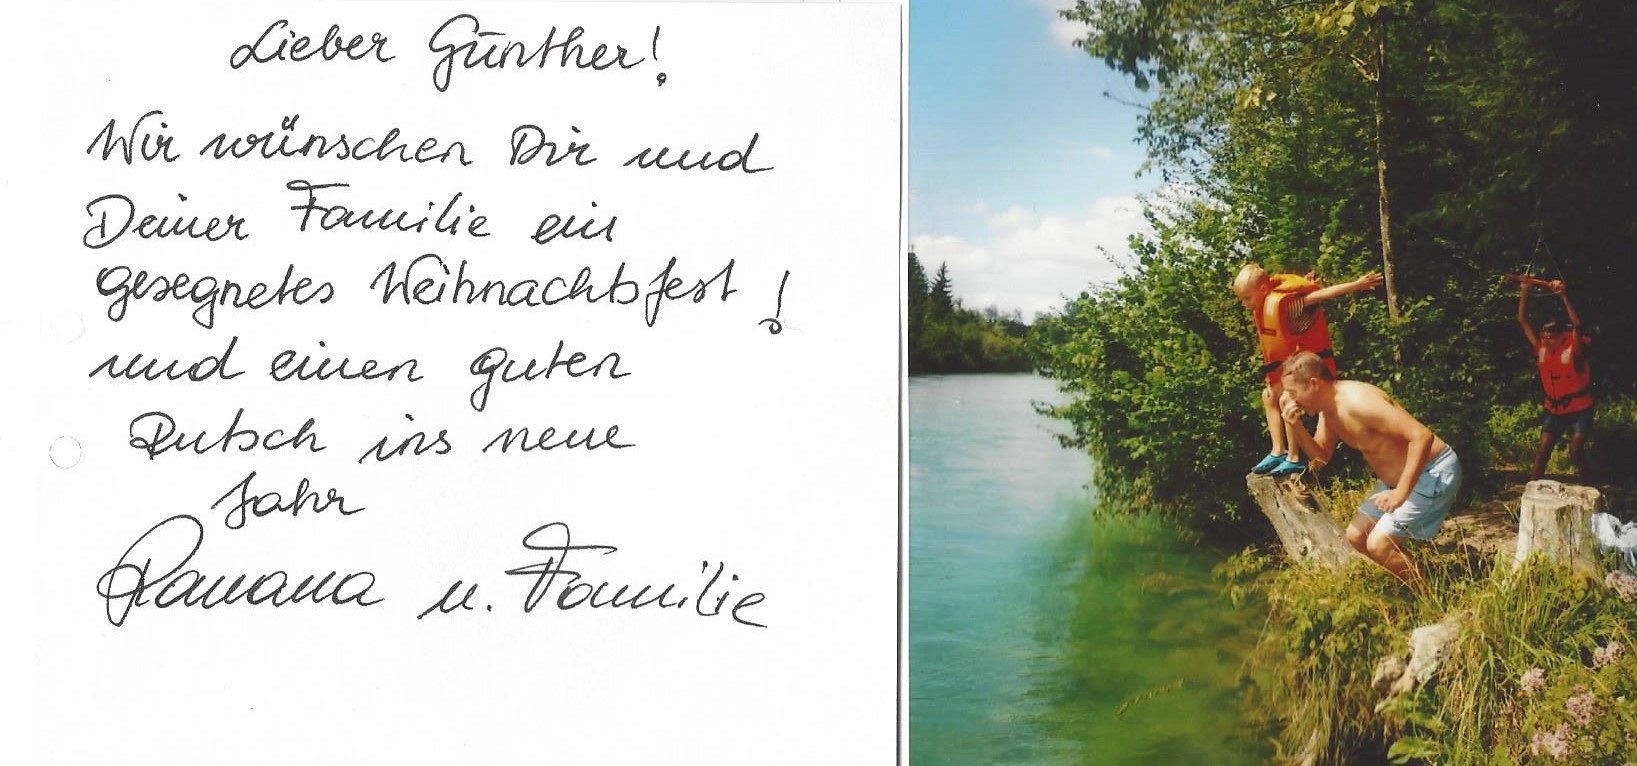 Lieber Günther!
Wir wünschen Dir und
Deiner Familie ein
gesegnetes Weihnachtsfest!
und einen guten
Rutsch ins neue
Jahr
Ramana u. Familie